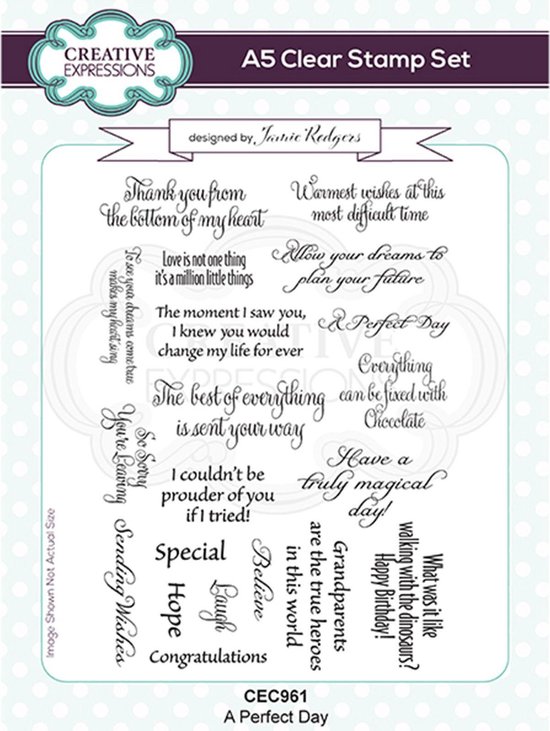 CREATIVE
EXPRESSIONS
A5 Clear Stamp Set
designed by Jamie Rodgers
Thank you from
the bottom of my heart
Warmest wishes at this
most difficult time
To see your dreams come true
makes my heart sing
Love is not one thing
it's a million little things
Allow your dreams to
plan your future
The moment I saw you,
I knew you would
change my life for ever
A Perfect Day
Everything
can be fixed with
Chocolate
The best of everything
is sent your way
So Sorry
You're Leaving
I couldn't be
prouder of you
if I tried!
Have a
truly magical
day!
Sending Wishes
Special
Hope
Laugh
Believe
Congratulations
Grandparents
are the true heroes
in this world
What was it like
walking with the dinosaurs?
Happy Birthday!
Image Shown Not Actual Size
CREATIVE
EXPRESSIONS
CEC961
A Perfect Day